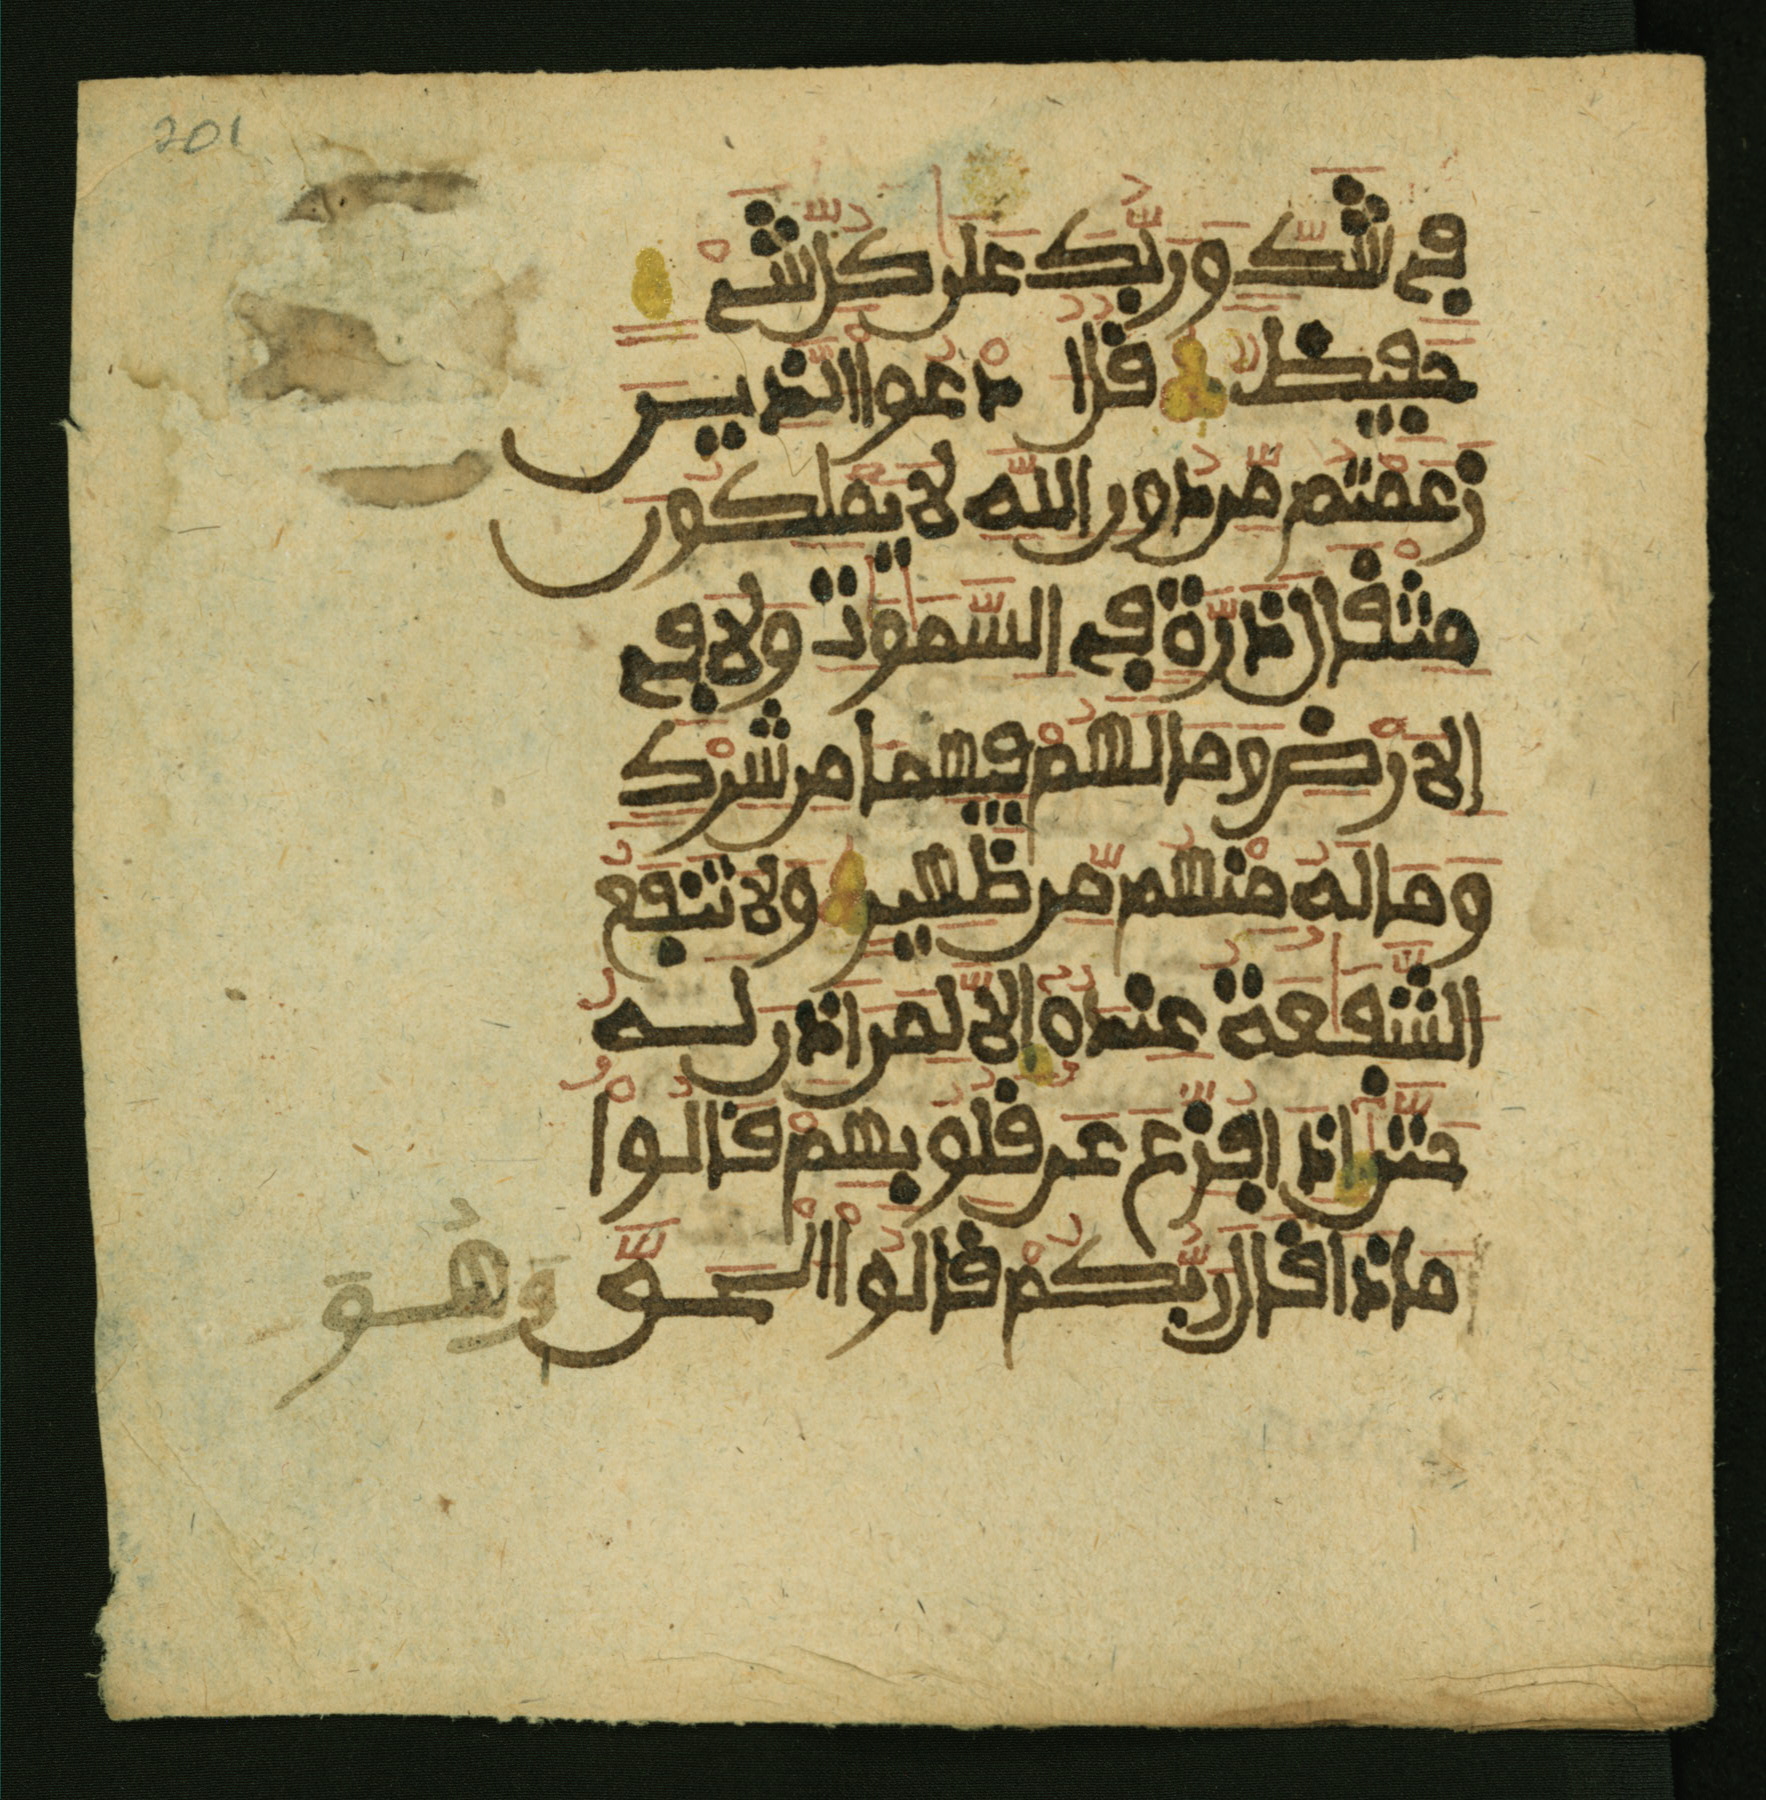 201
في شك وربك على كل شيء
حفيظ قل ادعوا الذين
زعمتم من دون الله لا يملكون
مثقال ذرة في السموت ولا في
الارض وما لهم فيهما من شرك
وما له منهم من ظهير ولا تنفع
الشفعة عنده الا لمن اذن له
حتى اذا فزع عن قلوبهم قالوا
ماذا قال ربكم قالوا الحق
وهو